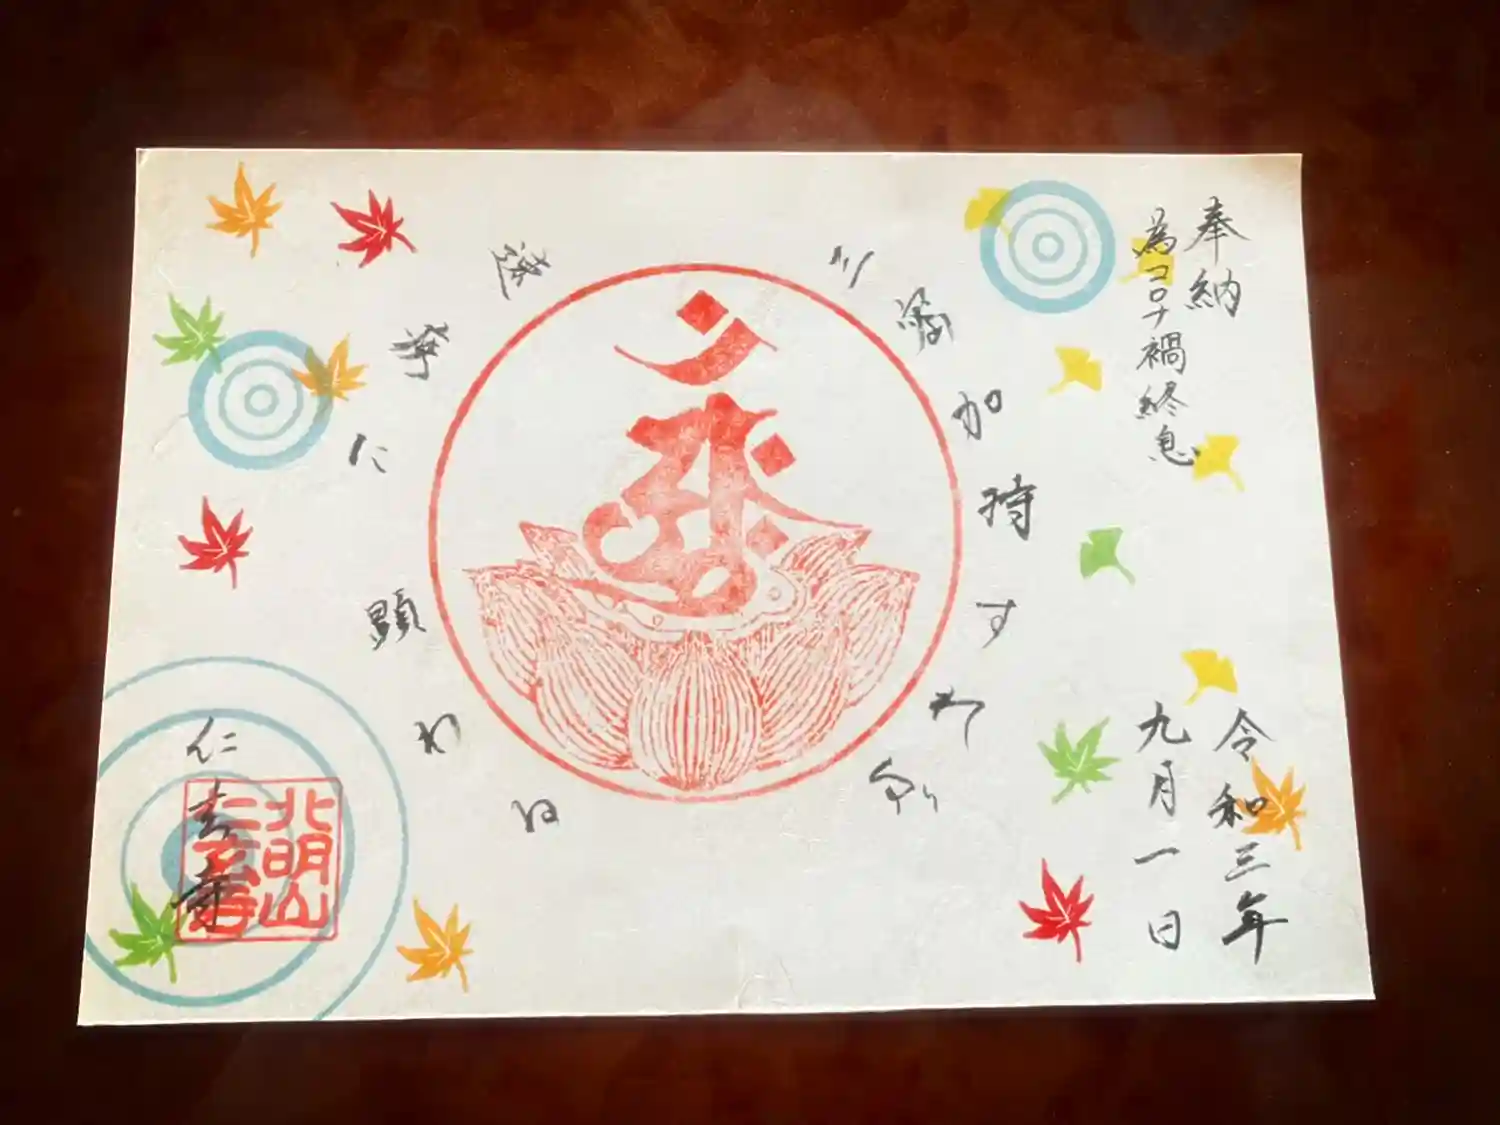 奉納
為コロナ禍終息
三密加持すれば
速疾に顯わる
令和三年
九月一日
仁玄寺
北明山
仁玄寺